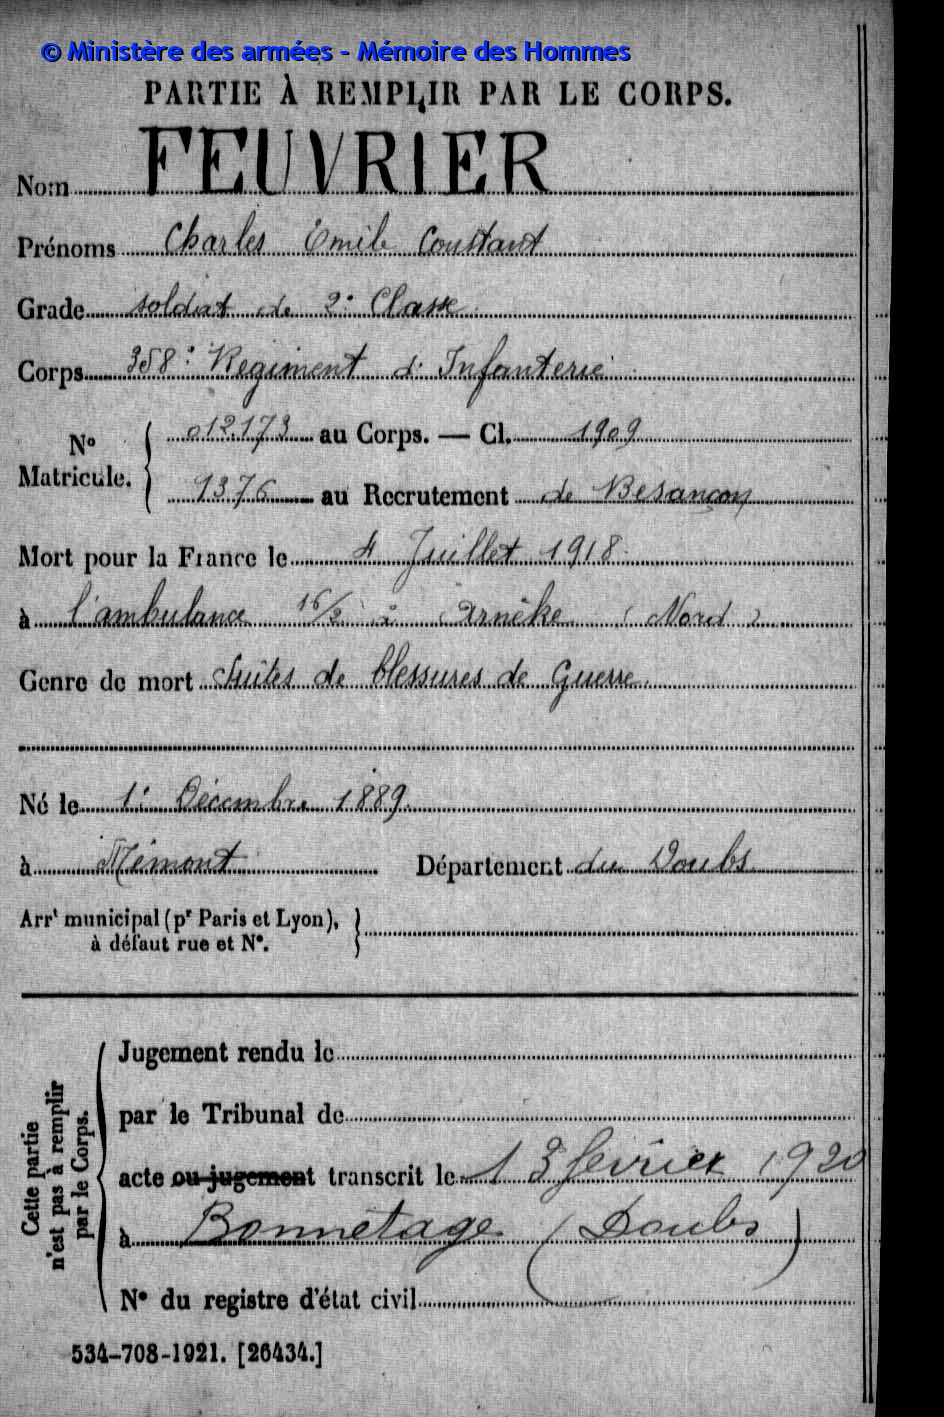 © Ministère des armées - Mémoire des Hommes
PARTIE À REMPLIR PAR LE CORPS.
Nom FEUVRIER
Prénoms Charles Emile Constant
Grade soldat de 2e Classe
Corps 358e Régiment d'Infanterie
No Matricule. { 012.173 au Corps. — Cl. 1909
1376 au Recrutement de Besançon
Mort pour la France le 4 Juillet 1918
à l'ambulance 16/2 à Arnèke (Nord)
Genre de mort Suites de blessures de Guerre.
Né le 1er Décembre 1889
à Mémont Département du Doubs
Arrt municipal (pr Paris et Lyon), à défaut rue et No.
Cette partie n'est pas à remplir par le Corps.
Jugement rendu le
par le Tribunal de
acte ou jugement transcrit le 13 février 1920
à Bonnétage (Doubs)
No du registre d'état civil
534-708-1921. [26434.]